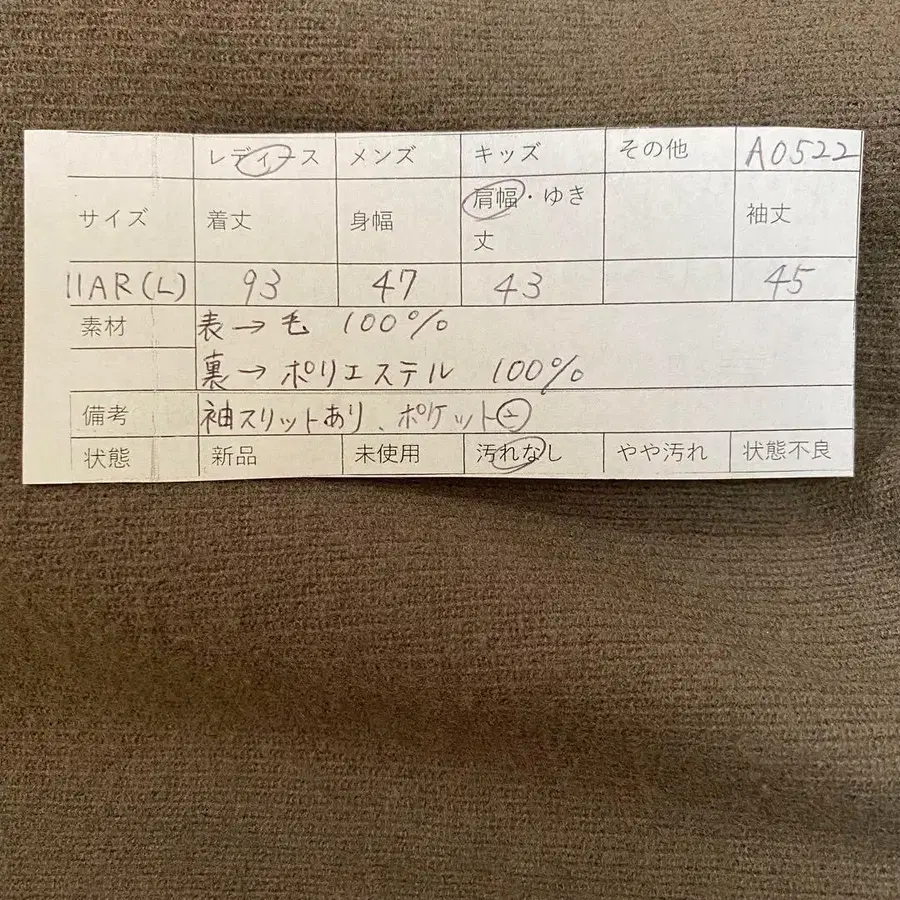 レディース メンズ キッズ その他 A0522
サイズ 着丈 身幅 肩幅・ゆき丈 袖丈
11AR(L) 93 47 43 45
素材 表→毛 100%
裏→ポリエステル 100%
備考 袖スリットあり、ポケット②
状態 新品 未使用 汚れなし やや汚れ 状態不良